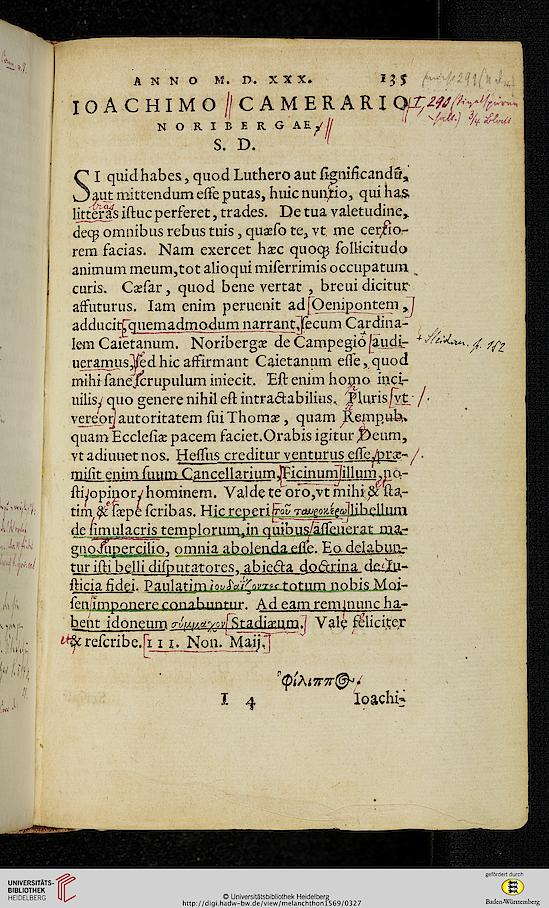 ANNO M. D. XXX. 135
IOACHIMO CAMERARIO
NORIBERGAE,
S. D.
SI quid habes, quod Luthero aut significandũ,
aut mittendum esse putas, huic nuntio, qui has
litteras istuc perferet, trades. De tua valetudine,
deq; omnibus rebus tuis, quæso te, vt me certio-
rem facias. Nam exercet hæc quoq; sollicitudo
animum meum, tot alioqui miserrimis occupatum
curis. Cæsar, quod bene vertat, breui dicitur
affuturus. Iam enim peruenit ad Oenipontem,
adducit, quemadmodum narrant, secum Cardina-
lem Caietanum. Noribergæ de Campegiô audi-
ueramus, sed hic affirmant Caietanum esse, quod
mihi sane scrupulum iniecit. Est enim homo inci-
uilis, quo genere nihil est intractabilius. Pluris vt
vereor autoritatem sui Thomæ, quam Rempub.
quam Ecclesiæ pacem faciet. Orabis igitur Deum,
vt adiuuet nos. Hessus creditur venturus esse, præ-
misit enim suum Cancellarium, Ficinum illum, no-
sti, opinor, hominem. Valde te oro, vt mihi & sta-
tim & sæpe scribas. Hic reperi τοῦ ταυροκέρω libellum
de simulacris templorum, in quibus asseuerat ma-
gno supercilio, omnia abolenda esse. Eo delabun-
tur isti belli disputatores, abiecta doctrina de Iu-
sticia fidei. Paulatim ιουδαΐζοντες totum nobis Moi-
sen imponere conabuntur. Ad eam rem nunc ha-
bent idoneum σύμμαχον Stadiæum. Vale feliciter
& rescribe. III. Non. Maij.
Φίλιππος.
I 4 Ioachi-
UNIVERSITÄTS-
BIBLIOTHEK
HEIDELBERG
© Universitätsbibliothek Heidelberg
http://digi.hadw-bw.de/view/melanchthon1569/0327
gefördert durch
Baden-Württemberg